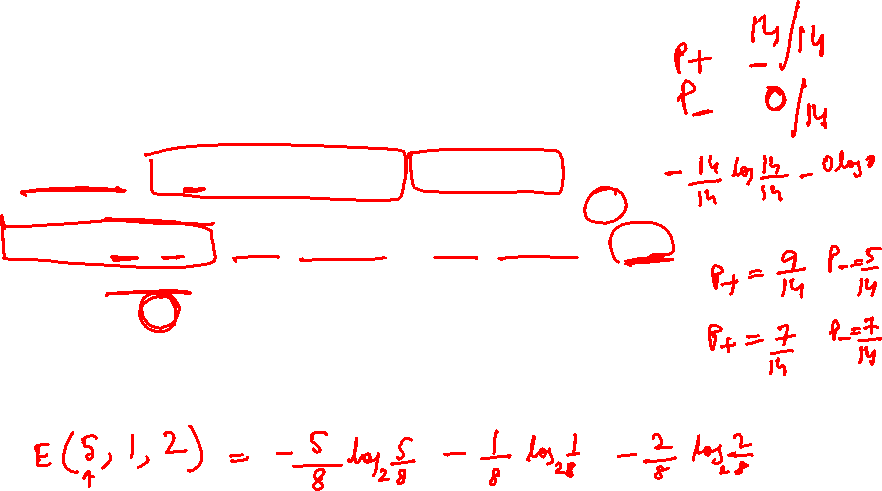 P+ 14/14
P_ 0/14
- 14/14 log 14/14 - 0log0
P+ = 9/14 P_ = 5/14
P+ = 7/14 P_ = 7/14
E(5, 1, 2) = - 5/8 log₂ 5/8 - 1/8 log₂ 1/8 - 2/8 log₂ 2/8